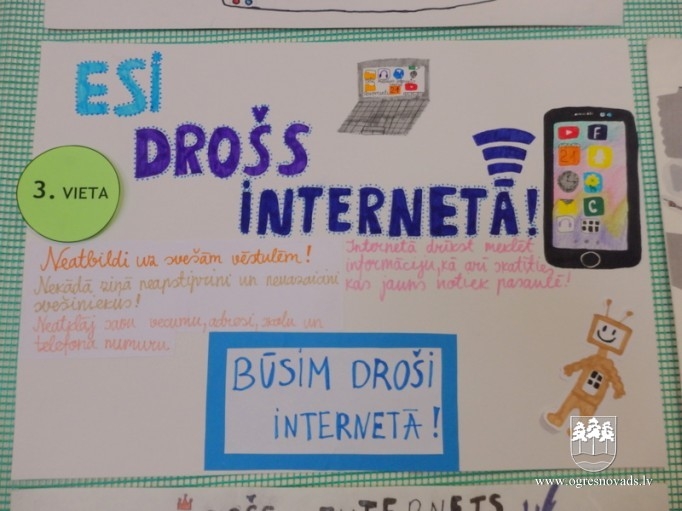 ESI
DROŠS
INTERNETĀ!
3. VIETA
Neatbildi uz svešām vēstulēm!
Nekādā ziņā neapstiprini un neuzaicini
svešiniekus!
Neatklāj savu vecumu, adresi, skolu un
telefona numuru
Internetā drīkst meklēt
informāciju, kā arī skatīties
kas jauns notiek pasaulē!
BŪSIM DROŠI
INTERNETĀ!
www.ogresnovads.lv